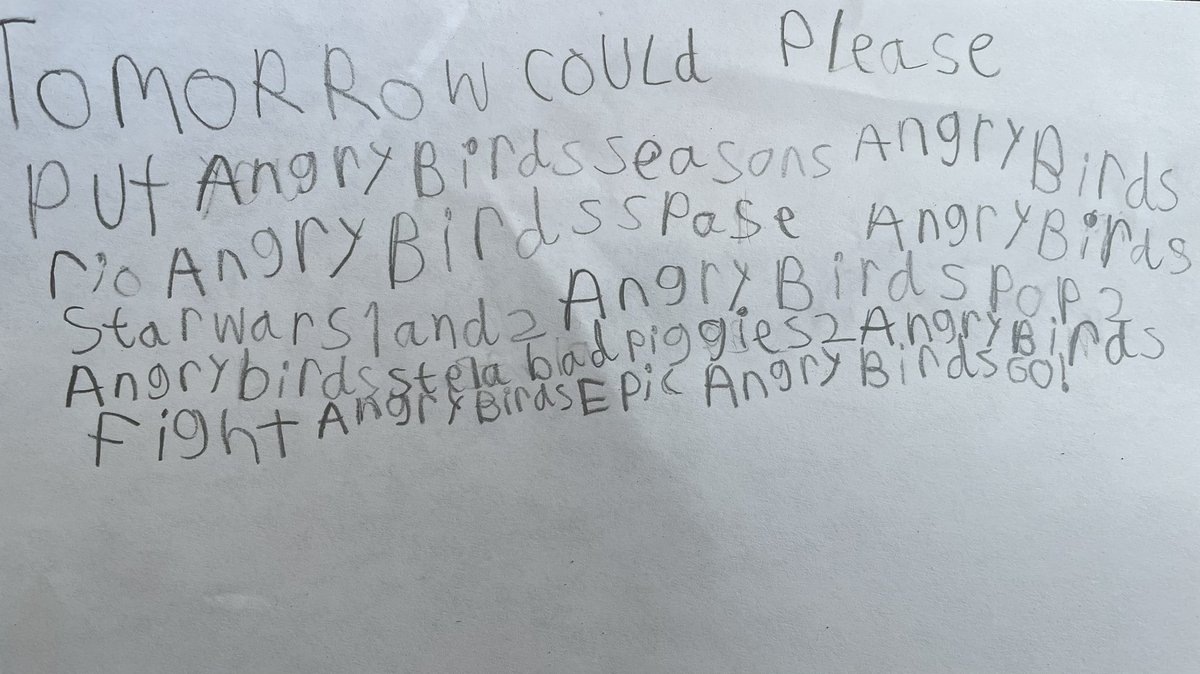 TOMORROW COULd Please
PUt AngryBirdsseasons AngryBirds
rio AngryBirdsspase AngryBirds
starwars1and2 AngryBirdspop2
Angrybirdsstela bad piggies2 AngryBirds
Fight AngryBirdsEpic AngryBirdsGO!